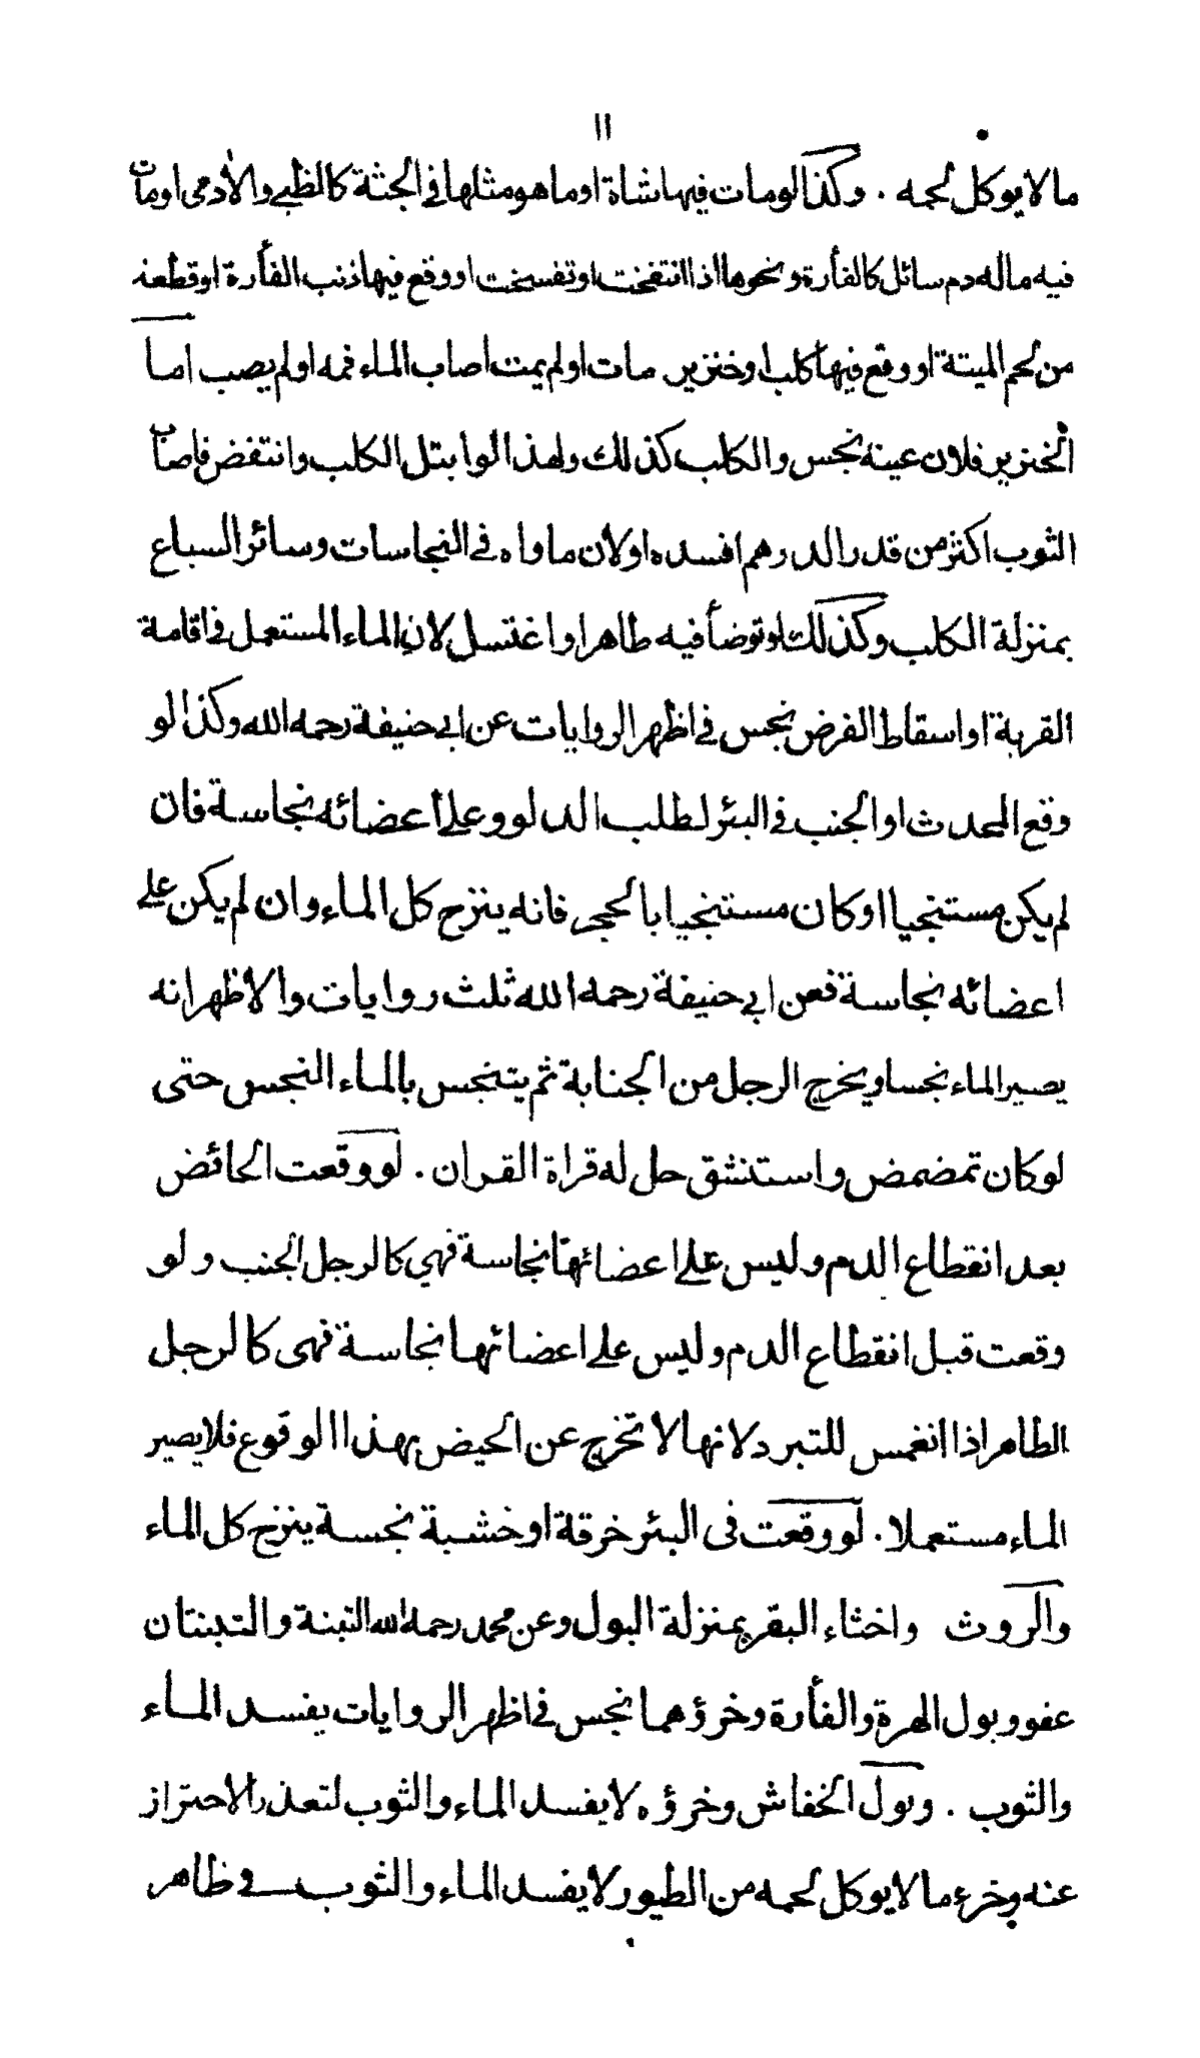 ١١
ما لا يوكل لحمه . وكذا لو مات فيها شاة او ما هو مثلها في الجثة كالظبي والأدمى او مات
فيه ماله دم سائل كالفأرة ونحوها اذا انتفخت او تفسخت او وقع فيها ذنب الفأرة او قطعة
من لحم الميتة او وقع فيها كلب او خنزير مات او لم يمت اصاب الماء فمه او لم يصب اما
الخنزير فلان عينه نجس والكلب كذلك ولهذا لو ابتل الكلب وانتفض فاصاب
الثوب اكثر من قدر الدرهم افسده او لان ماواه في النجاسات وسائر السباع
بمنزلة الكلب وكذلك لو توضأ فيه طاهر او اغتسل لان الماء المستعمل في اقامة
القربة او اسقاط الفرض نجس في اظهر الروايات عن ابي حنيفة رحمه الله وكذا لو
وقع المحدث او الجنب في البئر لطلب الدلو وعلى أعضائه نجاسة فان
لم يكن مستنجيا او كان مستنجيا بالحجر فانه ينزح كل الماء وان لم يكن على
اعضائه نجاسة فعن ابي حنيفة رحمه الله ثلث روايات والاظهر انه
يصير الماء نجسا ويخرج الرجل من الجنابة ثم يتنجس بالماء النجس حتى
لو كان تمضمض واستنشق حل له قراة القران . لو وقعت الحائض
بعد انقطاع الدم وليس على اعضائها نجاسة فهي كالرجل الجنب ولو
وقعت قبل انقطاع الدم وليس على اعضائها نجاسة فهى كالرجل
الطاهر اذا انغمس للتبرد لانها لا تخرج عن الحيض بهذا الوقوع فلا يصير
الماء مستعملا . لو وقعت فى البئر خرقة او خشبة نجسة ينزح كل الماء
والروث واخثاء البقر بمنزلة البول وعن محمد رحمه الله التبنة والتبنتان
عفو وبول الهرة والفأرة وخرؤهما نجس في اظهر الروايات يفسد الماء
والثوب . وبول الخفاش وخرؤه لا يفسد الماء والثوب لتعذر الاحتراز
عنه وخرء ما لا يوكل لحمه من الطيور لا يفسد الماء والثوب في ظاهر